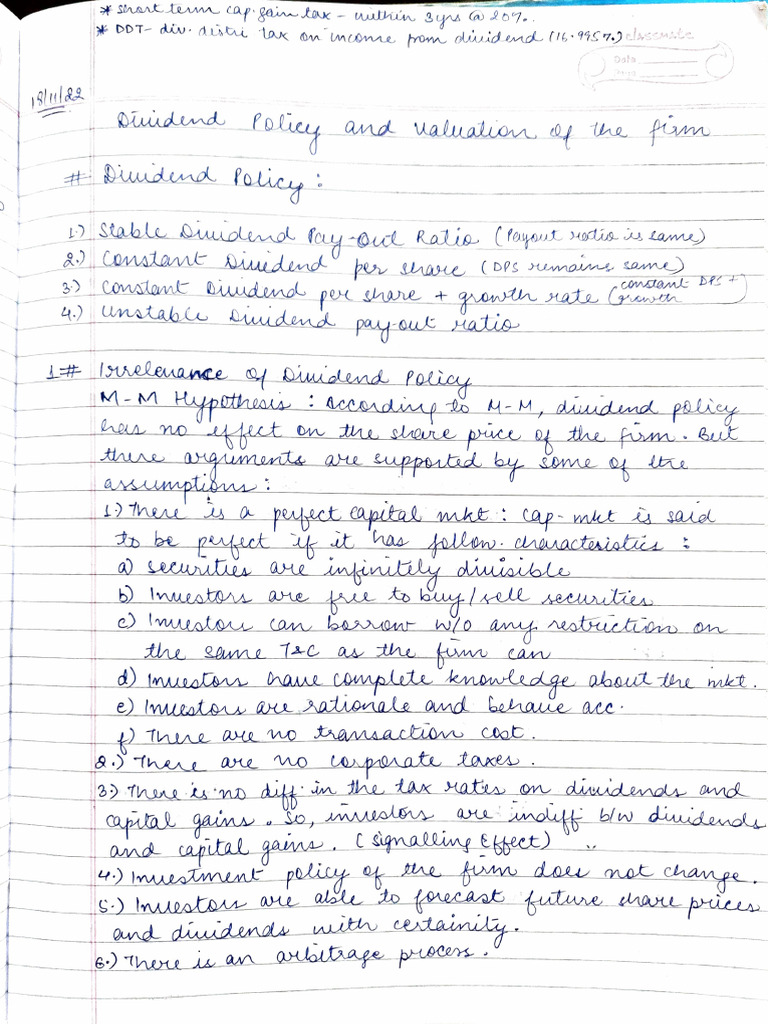 * Short term cap. gain tax - within 3 yrs @ 20%.
* DDT - div. distri tax on income from dividend (16.995%)
classmate
Date
Page
18/11/22
Dividend Policy and Valuation of the firm
# Dividend Policy :
1.) Stable Dividend Pay-Out Ratio (Payout ratio is same)
2.) Constant Dividend per share (DPS remains same)
3.) Constant Dividend per share + growth rate (constant DPS + growth)
4.) Unstable Dividend pay-out ratio
1 # Irrelevance of Dividend Policy
M-M Hypothesis : According to M-M, dividend policy
has no effect on the share price of the firm. But
these arguments are supported by some of the
assumptions :
1) There is a perfect capital mkt : Cap-mkt is said
to be perfect if it has follow. characteristics :
a) Securities are infinitely divisible
b) Investors are free to buy/sell securities
c) Investors can borrow w/o any restriction on
the same T&C as the firm can
d) Investors have complete knowledge about the mkt.
e) Investors are rationale and behave acc.
f) There are no transaction cost.
2.) There are no corporate taxes.
3.) There is no diff in the tax rates on dividends and
capital gains. So, investors are indiff b/w dividends
and capital gains. (Signalling Effect)
4.) Investment policy of the firm does not change.
5.) Investors are able to forecast future share prices
and dividends with certainity.
6.) There is an arbitrage process.